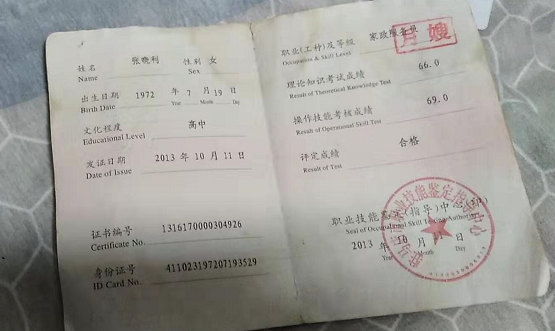 姓名 张晓利 性别 女
Name Sex
出生日期 1972 年 7 月 19 日
Birth Date Year Month Day
文化程度 高中
Educational Level
发证日期 2013 年 10 月 11 日
Date of Issue
证书编号 1316170000304926
Certificate No.
身份证号 411023197207193529
ID Card No.
职业(工种)及等级 家政服务员
Occupation & Skill Level
月嫂
理论知识考试成绩 66.0
Result of Theoretical Knowledge Test
操作技能考核成绩 69.0
Result of Operational Skill Test
评定成绩 合格
Result of Test
职业技能鉴定(指导)中心(印)
Seal of Occupational Skill Testing Authority
2013 年 10 月 11 日
Year Month Day
职业技能鉴定指导中心